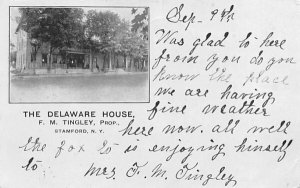 Sep - 9th
Was glad to here
from you do you
know the place
we are having
fine weather
here now. all well
the fox is enjoying himself
to
Mrs F. M. Tingley
THE DELAWARE HOUSE,
F. M. TINGLEY, PROP.,
STAMFORD, N. Y.